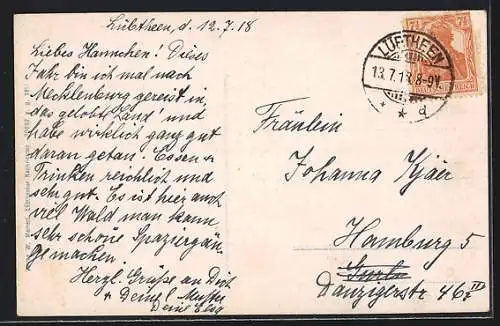 Lübtheen, d. 12.7.18
Liebes Hannchen! Dieses
Jahr bin ich mal nach
Mecklenburg gereist in,
das gelobte Land' und
habe wirklich ganz gut
daran getan. Essen u
Trinken reichlich und
sehr gut. Es ist hier auch
viel Wald man kann
sehr schöne Spaziergän-
ge machen.
Herzl. Grüße an Dich
u Deine l. Mutter
Deine Elsa
LÜBTHEEN
13.7.18.8-9V.
* * a
7½
7½
Fräulein
Johanna Kjäer
Hamburg 5
Danzigerstr 46 III